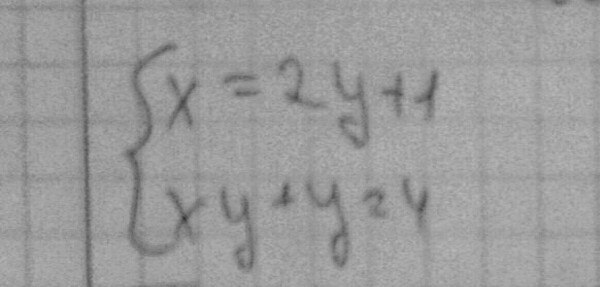 x = 2y+1
xy+y=4